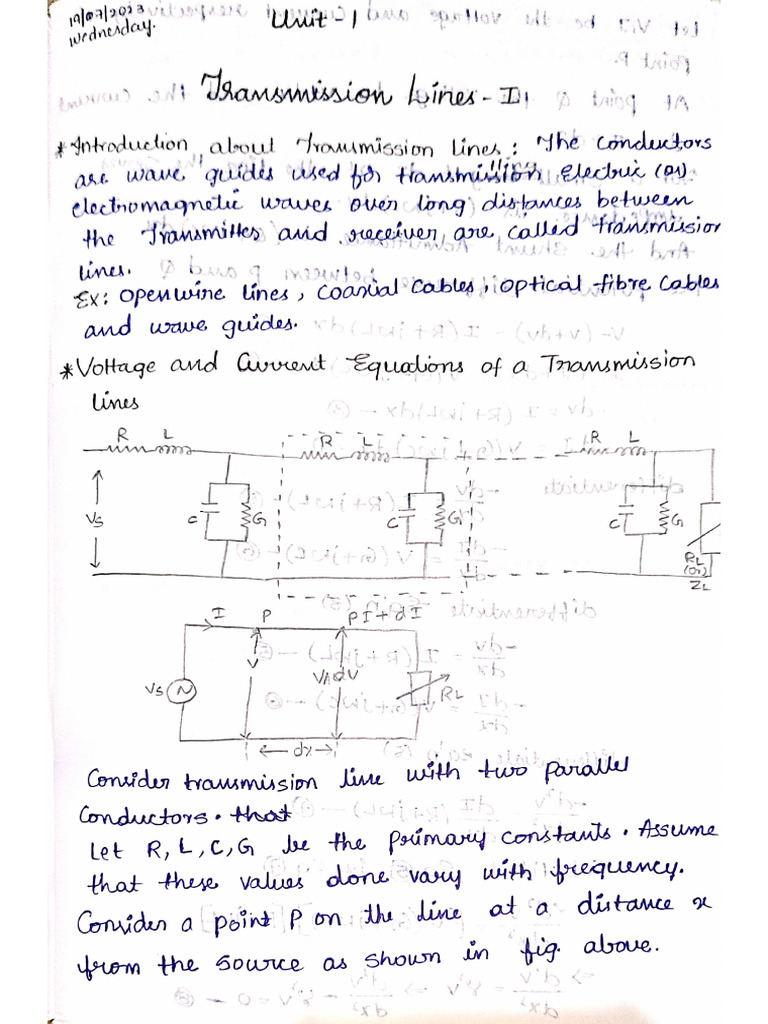 19/07/2023
Wednesday.
Unit - 1
Transmission Lines - I
* Introduction about Transmission Lines : The conductors
are wave guides used for transmission Electric (or)
electromagnetic waves over long distances between
the Transmitter and receiver are called transmission
lines.
Ex: open wire lines, coaxial cables, optical fibre cables
and wave guides.
* Voltage and Current Equations of a Transmission
Lines
R L R L R L
Vs C G C G C G
RL
(or)
ZL
I P P I + dI
Vs N V V+dV RL
dx
Consider transmission line with two parallel
conductors. that
Let R, L, C, G be the primary constants. Assume
that these values done vary with frequency.
Consider a point P on the line at a distance x
from the source as shown in fig. above.